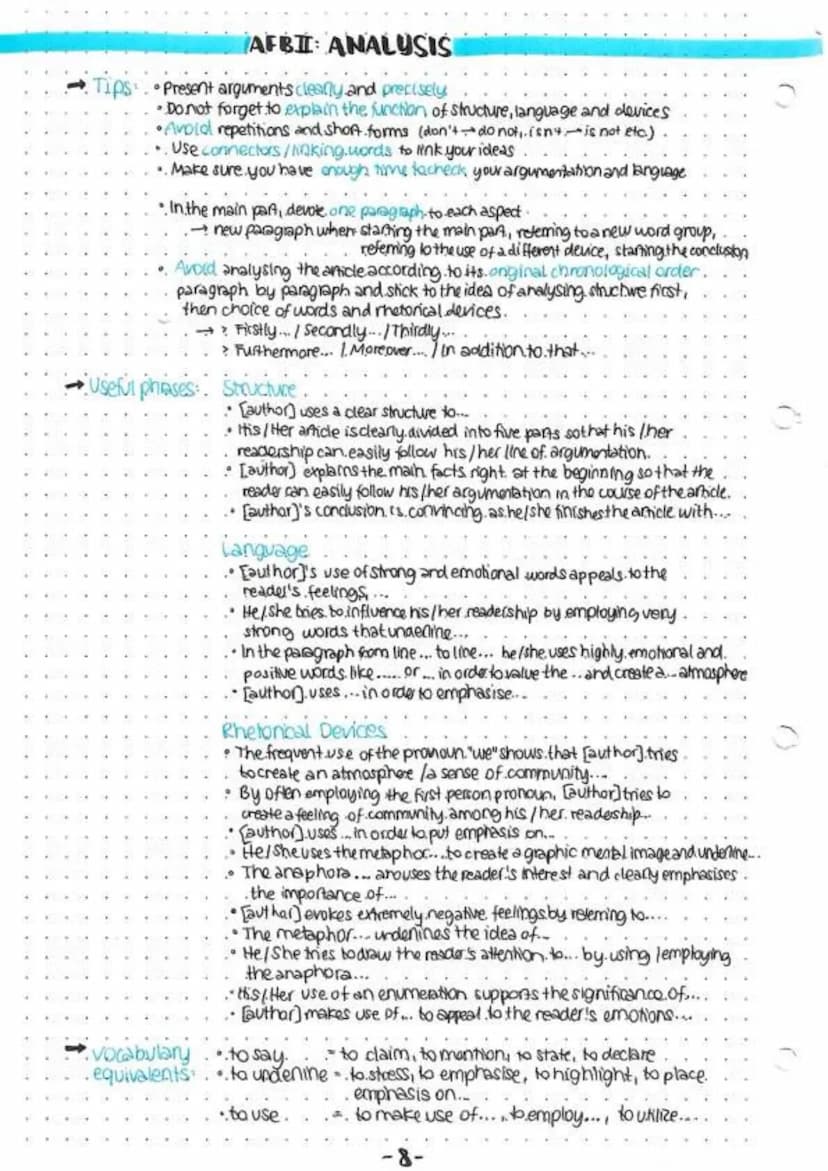 AFBII: ANALYSIS
→ Tips: • Present arguments clearly and precisely
• Do not forget to explain the function of structure, language and devices
• Avoid repetitions and short forms (don't → do not, isn't → is not etc.)
• Use connectors / linking words to link your ideas
• Make sure you have enough time to check your argumentation and language
• In the main part, devote one paragraph to each aspect
→ new paragraph when starting the main part, referring to a new word group,
referring to the use of a different device, starting the conclusion
• Avoid analysing the article according to its original chronological order
paragraph by paragraph and stick to the idea of analysing structure first,
then choice of words and rhetorical devices.
→ > Firstly... / Secondly... / Thirdly...
> Furthermore... / Moreover... / In addition to that...
→ Useful phrases: Structure
• [author] uses a clear structure to...
• His / Her article is clearly divided into five parts so that his / her
readership can easily follow his / her line of argumentation.
• [author] explains the main facts right at the beginning so that the
reader can easily follow his / her argumentation in the course of the article.
• [author]'s conclusion is convincing as he / she finishes the article with...
Language
• [author]'s use of strong and emotional words appeals to the
reader's feelings, ...
• He / She tries to influence his / her readership by employing very
strong words that underline...
• In the paragraph from line ... to line... he / she uses highly emotional and
positive words like ..... or ... in order to value the ... and create a ... atmosphere
• [author] uses ... in order to emphasise...
Rhetorical Devices
• The frequent use of the pronoun "we" shows that [author] tries
to create an atmosphere / a sense of community...
• By often employing the first person pronoun, [author] tries to
create a feeling of community among his / her readership...
• [author] uses ... in order to put emphasis on...
• He / She uses the metaphor... to create a graphic mental image and underline...
• The anaphora ... arouses the reader's interest and clearly emphasises
the importance of...
• [author] evokes extremely negative feelings by referring to....
• The metaphor... underlines the idea of...
• He / She tries to draw the reader's attention to... by using / employing
the anaphora...
• His / Her use of an enumeration supports the significance of...
• [author] makes use of... to appeal to the reader's emotions...
→ vocabulary equivalents: • to say = to claim, to mention, to state, to declare
• to underline = to stress, to emphasise, to highlight, to place
emphasis on...
• to use = to make use of..., to employ..., to utilize...
-8-